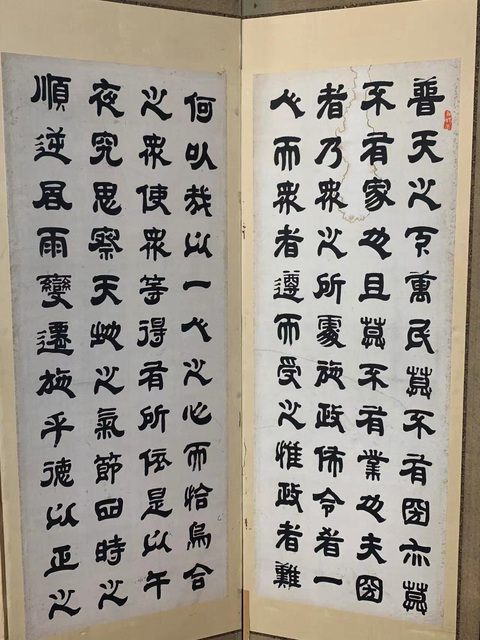 普天之下萬民莫不有圀亦莫
不有家也且莫不有業也夫圀
者乃衆之所處施政佈令者一
人而衆者遵而受之惟政者難
何以哉以一人之心而恰烏合
之衆使衆等得有所依是以午
夜究思察天地之氣節四時之
順逆風雨變遷施乎德以正之